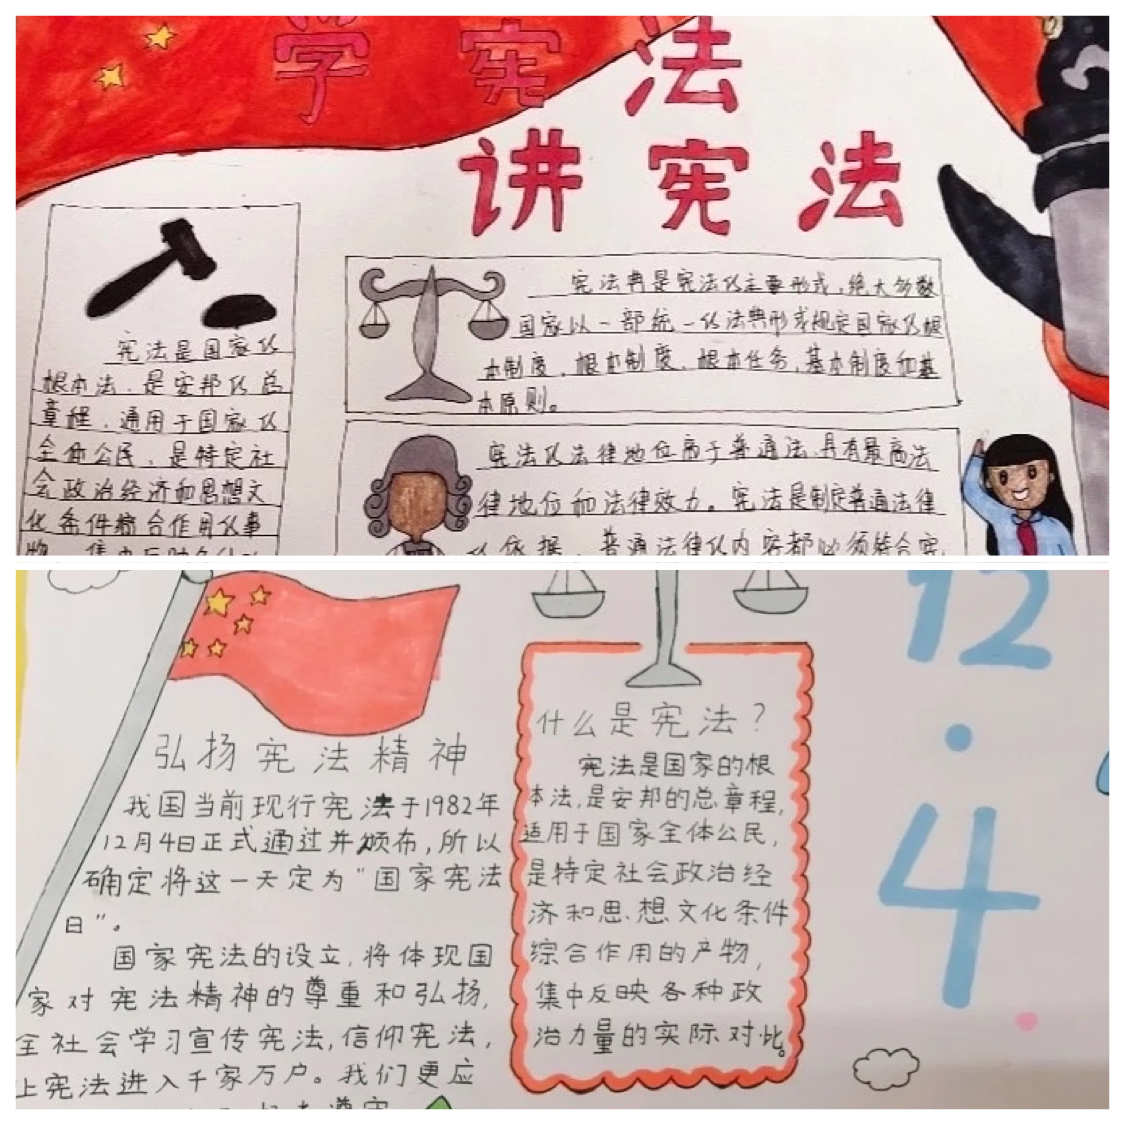 学宪法
讲宪法
宪法是国家的
根本法，是安邦的总
章程，通用于国家的
全体公民，是特定社
会政治经济和思想文
化条件综合作用的事
宪法典是宪法的主要形式，绝大多数
国家以一部统一的法典形式规定国家的根
本制度，根本制度、根本任务，基本制度和基
本原则。
宪法的法律地位高于普通法，具有最高法
律地位和法律效力。宪法是制定普通法律
的依据，普通法律的内容都必须符合宪
弘扬宪法精神
我国当前现行宪法于1982年
12月4日正式通过并颁布，所以
确定将这一天定为“国家宪法
日”。
国家宪法的设立，将体现国
家对宪法精神的尊重和弘扬，
全社会学习宣传宪法，信仰宪法，
上宪法进入千家万户。我们更应
什么是宪法？
宪法是国家的根
本法，是安邦的总章程，
适用于国家全体公民，
是特定社会政治经
济和思想文化条件
综合作用的产物，
集中反映各种政
治力量的实际对比。
12
·
4